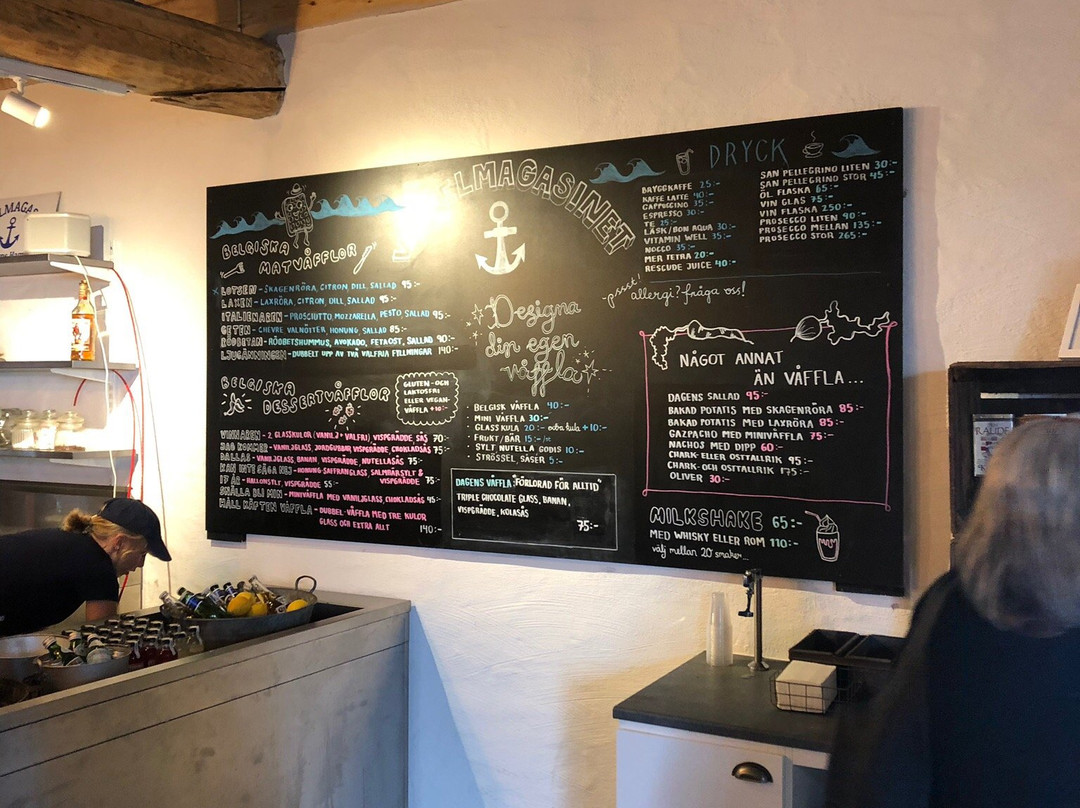 LMAGASINET
BELGISKA
MATVÅFFLOR
LOTSEN - SKAGENRÖRA, CITRON, DILL, SALLAD 95:-
LAXEN - LAXRÖRA, CITRON, DILL, SALLAD 95:-
ITALIENAREN - PROSCIUTTO, MOZZARELLA, PESTO, SALLAD 95:-
GETEN - CHEVRE VALNÖTTER, HONUNG, SALLAD 85:-
RÖDBETAN - RÖDBETSHUMMUS, AVOKADO, FETAOST, SALLAD 90:-
LJUGÄNNINGEN - DUBBELT UPP AV TVÅ VALFRIA FYLLNINGAR 140:-
BELGISKA
DESSERTVÅFFLOR
GLUTEN- OCH
LAKTOSFRI
ELLER VEGAN-
VÅFFLA +10:-
VINNAREN - 2 GLASSKULOR (VANILJ + VALFRI) VISPGRÄDDE, SÅS 70:-
DAG KOMMER - VANILJGLASS, JORDGUBBAR, VISPGRÄDDE, CHOKLADSÅS 75:-
DALLAS - VANILJGLASS, BANAN, VISPGRÄDDE, NUTELLASÅS 75:-
KAN INTE SÄGA NEJ - HONUNG-SAFFRANGLASS, SALMBÄRSYLT &
VISPGRÄDDE 75:-
17 ÅR - HALLONSYLT, VISPGRÄDDE 55:-
SNÄLLA BLI MIN - MINIVÅFFLA MED VANILJGLASS, CHOKLADSÅS 45:-
HÅLL KÄFTEN VÅFFLA - DUBBEL-VÅFFLA MED TRE KULOR
GLASS OCH EXTRA ALLT
140:-
Designa
din egen
våffla
BELGISK VÅFFLA 40:-
MINI VÅFFLA 30:-
GLASSKULA 20:- extra kula +10:-
FRUKT/BÄR 15:-/st
SYLT NUTELLA GODIS 10:-
STRÖSSEL, SÅSER 5:-
DAGENS VÅFFLA: "FÖRLORAD FÖR ALLTID"
TRIPLE CHOCOLATE GLASS, BANAN,
VISPGRÄDDE, KOLASÅS
75:-
DRYCK
BRYGGKAFFE 25:-
KAFFE LATTE 40:-
CAPPUCCINO 35:-
ESPRESSO 30:-
TE 25:-
LÄSK/BON AQUA 30:-
VITAMIN WELL 35:-
NOCCO 35:-
MER TETRA 20:-
RESCUDE JUICE 40:-
SAN PELLEGRINO LITEN 30:-
SAN PELLEGRINO STOR 45:-
ÖL FLASKA 65:-
VIN GLAS 75:-
VIN FLASKA 250:-
PROSECCO LITEN 90:-
PROSECCO MELLAN 135:-
PROSECCO STOR 265:-
pssst! allergi? fråga oss!
NÅGOT ANNAT
ÄN VÅFFLA...
DAGENS SALLAD 95:-
BAKAD POTATIS MED SKAGENRÖRA 85:-
BAKAD POTATIS MED LAXRÖRA 85:-
GAZPACHO MED MINIVÅFFLA 75:-
NACHOS MED DIPP 60:-
CHARK- ELLER OSTTALLRIK 95:-
CHARK- OCH OSTTALLRIK 175:-
OLIVER 30:-
MILKSHAKE 65:-
MED WHISKY ELLER ROM 110:-
välj mellan 20 smaker...
MUM
LMAGAS